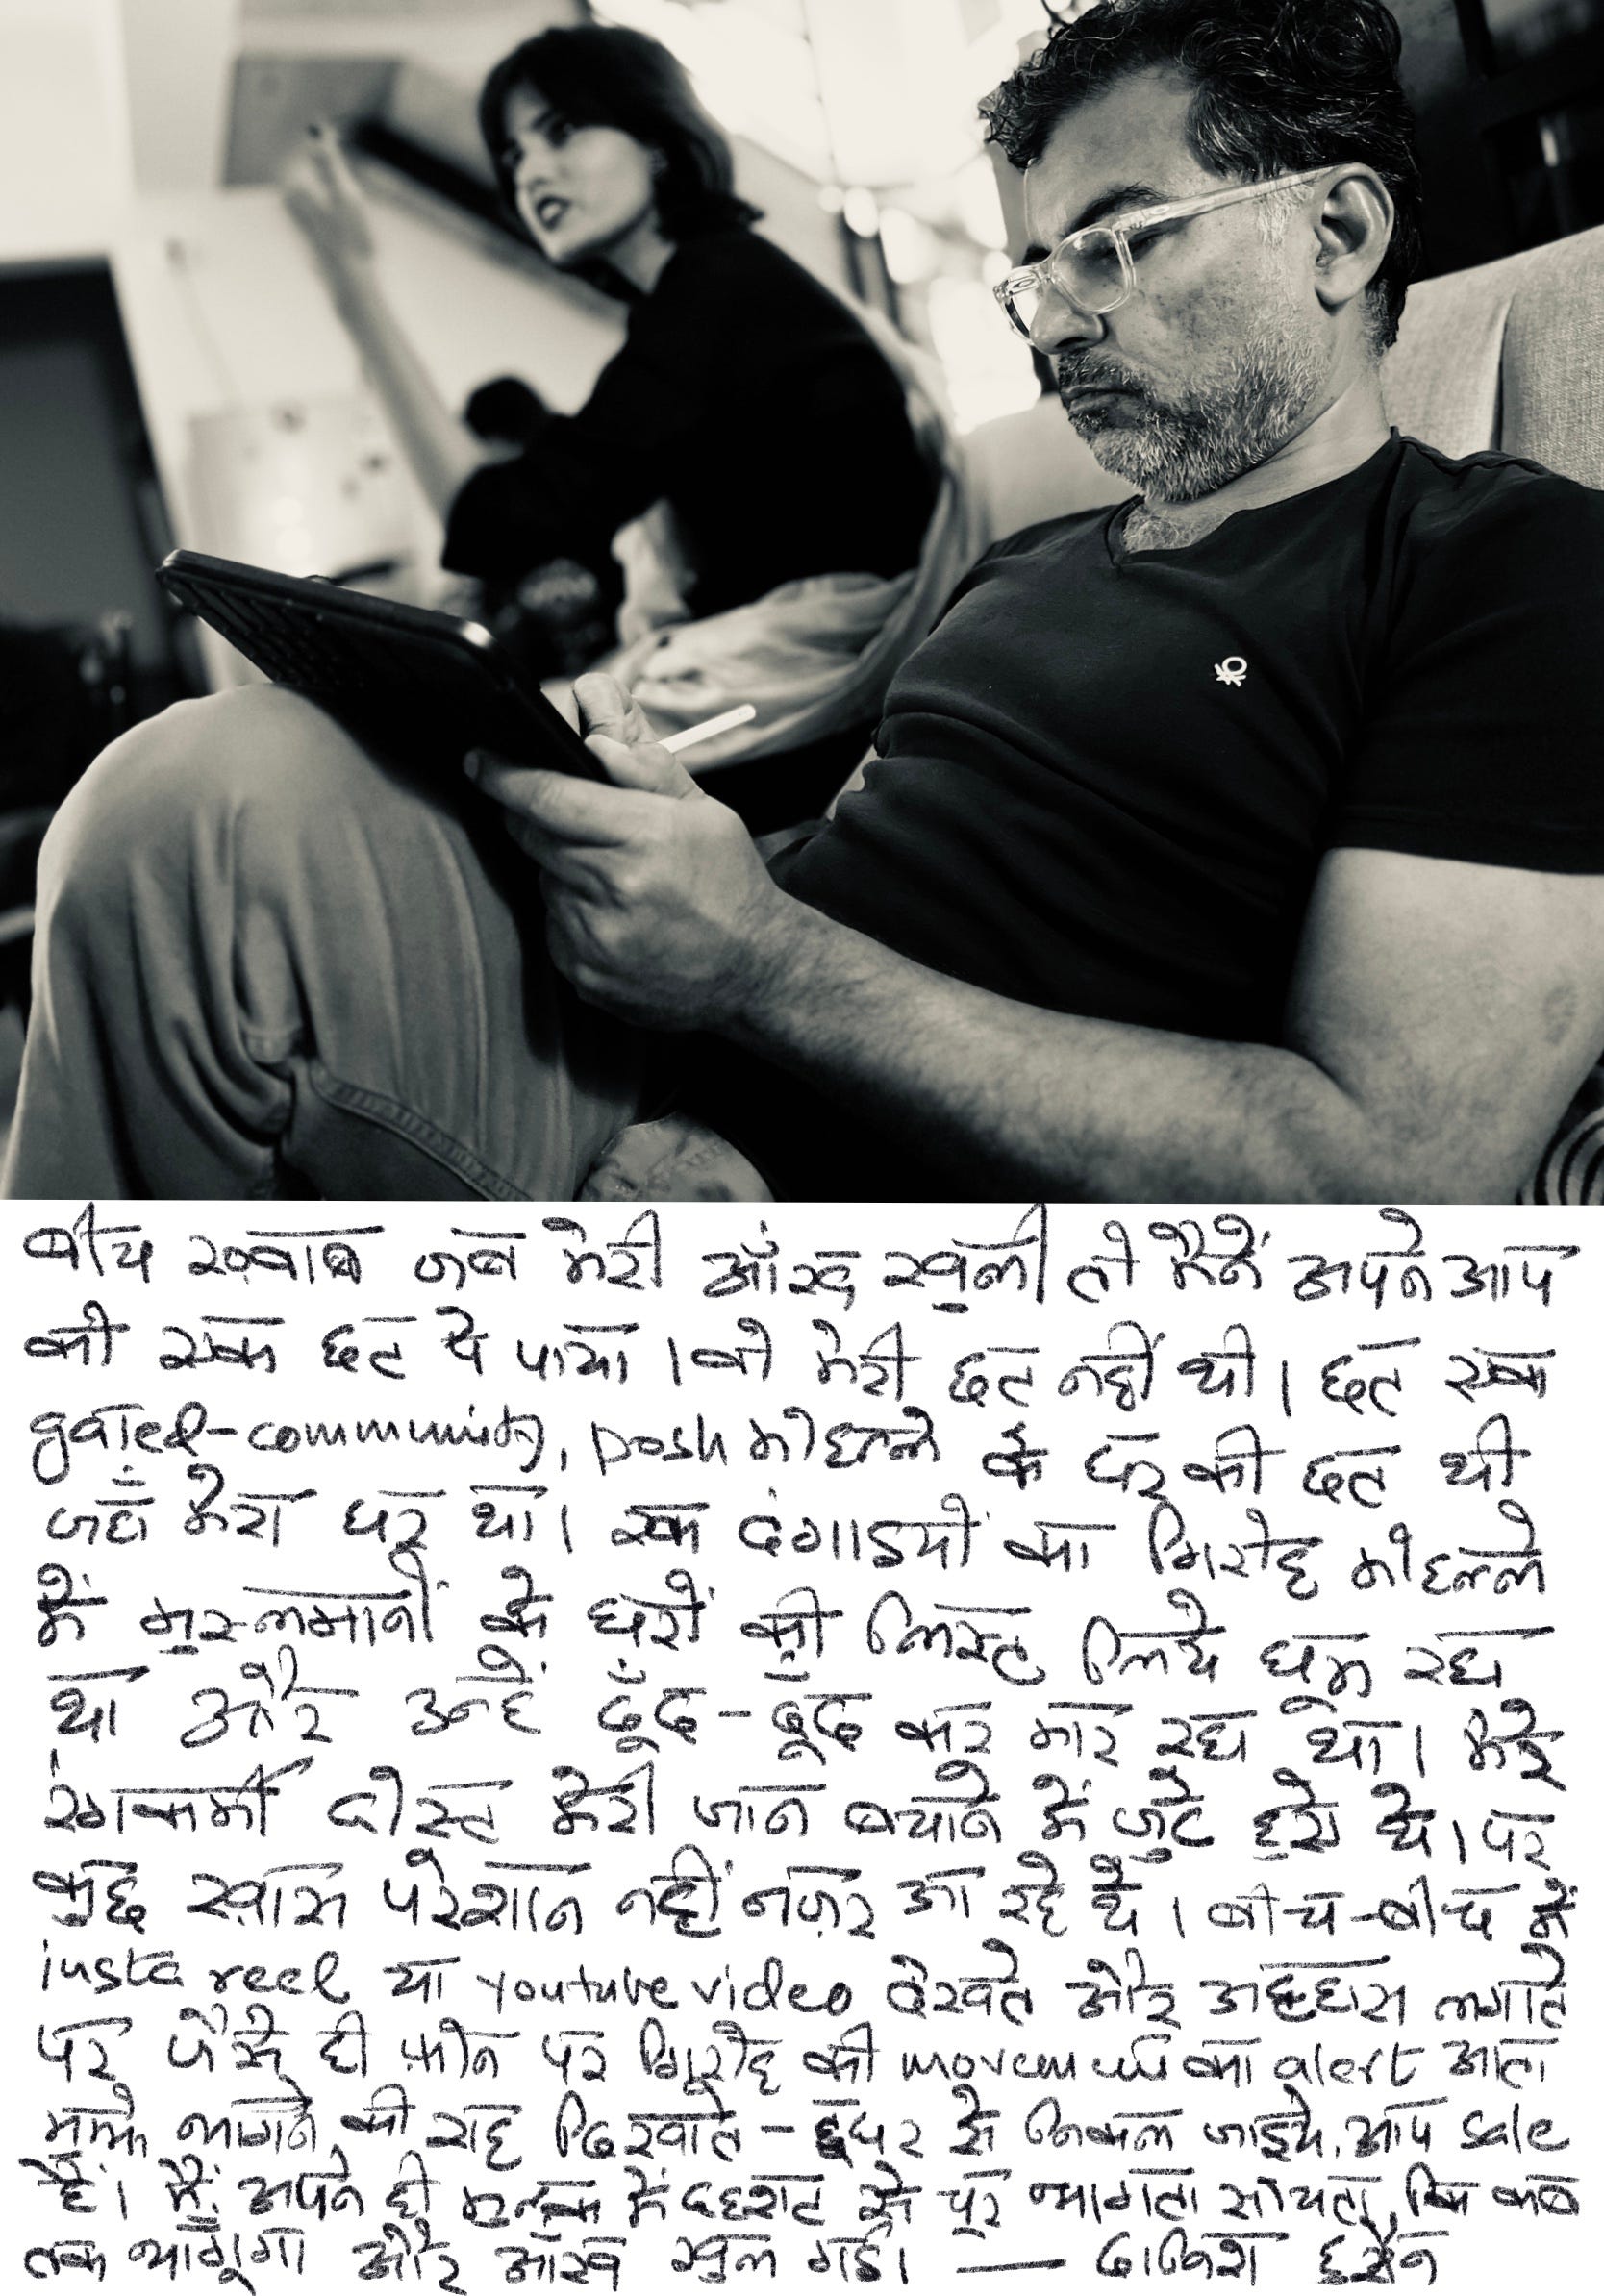 बीच ख़्वाब जब मेरी आँख खुली तो मैंने अपने आप
को एक छत पे पाया । वो मेरी छत नहीं थी । छत एक
gated-community, posh मोहल्ले के घर की छत थी
जहाँ मेरा घर था। एक दंगाइयों का गिरोह मोहल्ले
में मुसलमानों के घरों की लिस्ट लिये घूम रहा
था और उन्हें ढूँढ-ढूँढ कर मार रहा था। मेरे
रंगकर्मी दोस्त मेरी जान बचाने में जुटे हुए थे। पर
कुछ ख़ास परेशान नहीं नज़र आ रहे थे । बीच-बीच में
insta reel या youtube video देखते और अट्टहास लगाते
पर जैसे ही फ़ोन पर गिरोह की movement का alert आता
मुझे भागने की राह दिखाते - इधर से निकल जाइये, आप safe
हैं। मैं अपने ही मुल्क में दहशत से पुर भागता सोचता, कि कब
तक भागूँगा और आँख खुल गई। — दानिश हुसैन